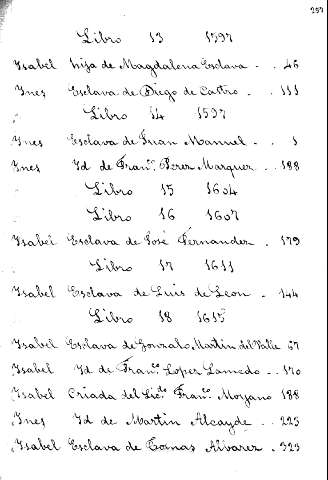 257
Libro 13 1597
Ysabel hija de Magdalena Esclava . . 46
Ynes Esclava de Diego de Castro . . 111
Libro 14 1597
Ynes Esclava de Juan Manuel . . 1
Ynes Id de Franco. Perez Marquez . . 188
Libro 15 1604
Libro 16 1607
Ysabel Esclava de José Fernandez . 179
Libro 17 1611
Ysabel Esclava de Luis de Leon . 144
Libro 18 1615
Ysabel Esclava de Gonzalo Martin del Valle 67
Ysabel Id de Franco. Lopez Lamedo . . 170
Ysabel Criada del Licdo. Franco. Moyano 188
Ynes Id de Martin Alcayde . . 225
Ysabel Esclava de Tomas Alvarez . 323